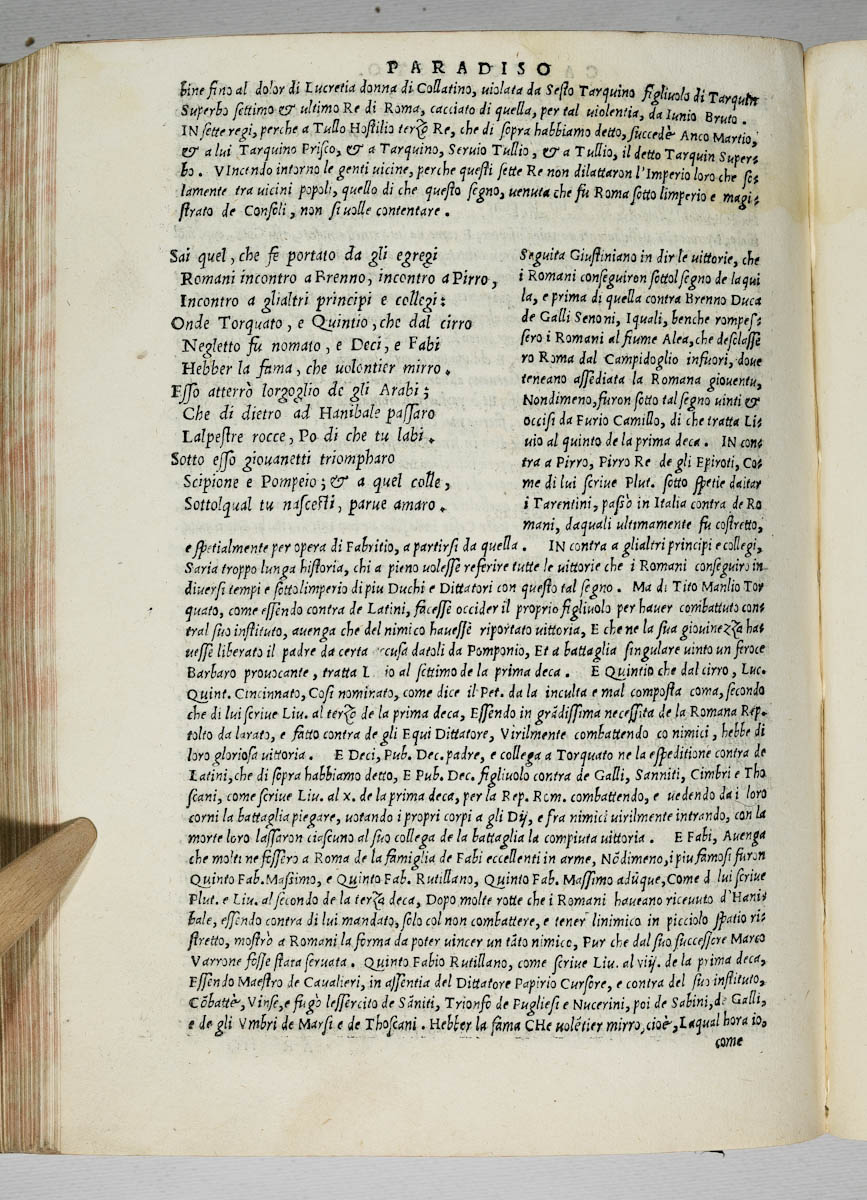 PARADISO
bine fino al dolor di Lucretia donna di Collatino, uiolata da Sesto Tarquino figliuolo di Tarquin
Superbo settimo & ultimo Re di Roma, cacciato di quella, per tal uiolentia, da Iunio Bruto.
IN sette regi, perche a Tullo Hostilio terzo Re, che di sopra habbiamo detto, succedè Anco Martio,
& a lui Tarquino Prisco, & a Tarquino, Seruio Tullio, & a Tullio, il detto Tarquin Super-
bo. VIncendo intorno le genti uicine, perche questi sette Re non dilattaron l'Imperio loro che so-
lamente tra uicini popoli, quello di che questo segno, uenuta che fu Roma sotto limperio e magi-
strato de Consoli, non si uolle contentare.
Sai quel, che fe portato da gli egregi
Romani incontro a Brenno, incontro a Pirro,
Incontro a glialtri principi e collegi:
Onde Torquato, e Quintio, che dal cirro
Negletto fu nomato, e Deci, e Fabi
Hebber la fama, che uolontier mirro.
Esso atterrò lorgoglio de gli Arabi;
Che di dietro ad Hanibale passaro
Lalpestre rocce, Po di che tu labi.
Sotto esso giouanetti triompharo
Scipione e Pompeio; & a quel colle,
Sottolqual tu nascesti, parue amaro.
Seguita Giustiniano in dir le uittorie, che
i Romani conseguiron sottol segno de laqui
la, e prima di quella contra Brenno Duca
de Galli Senoni, Iquali, benche rompes-
sero i Romani al fiume Alea, che desolasse
ro Roma dal Campidoglio infuori, doue
teneano assediata la Romana giouentu,
Nondimeno, furon sotto tal segno uinti &
occisi da Furio Camillo, di che tratta Li-
uio al quinto de la prima deca. IN con-
tra a Pirro, Pirro Re de gli Epiroti, Co-
me di lui scriue Plut. sotto spetie daitar
i Tarentini, passò in Italia contra de Ro
mani, daquali ultimamente fu costretto,
e spetialmente per opera di Fabritio, a partirsi da quella. IN contra a glialtri principi e collegi,
Saria troppo lunga historia, chi a pieno uolesse referire tutte le uittorie che i Romani conseguiro in
diuersi tempi e sotto limperio di piu Duchi e Dittatori con questo tal segno. Ma di Tito Manlio Tor
quato, come essendo contra de Latini, facesse occider il proprio figliuolo per hauer combattuto con-
tral suo instituto, auenga che del nimico hauesse riportato uittoria, E che ne la sua giouinezza ha-
uesse liberato il padre da certa datoli da Pomponio, Et a battaglia singulare uinto un feroce
Barbaro prouocante, tratta al settimo de la prima deca. E Quintio che dal cirro, Luc.
Quint. Cincinnato, Cosi nominato, come dice il Pet. da la inculta e mal composta coma, secondo
che di lui scriue Liu. al terzo de la prima deca, Essendo in grãdissima necessita de la Romana Rep.
tolto da larato, e fatto contra de gli Equi Dittatore, Virilmente combattendo co nimici, hebbe di
loro gloriosa uittoria. E Deci, Pub. Dec. padre, e collega a Torquato ne la espeditione contra de
Latini, che di sopra habbiamo detto, E Pub. Dec. figliuolo contra de Galli, Sanniti, Cimbri e Tho
scani, come scriue Liu. al x. de la prima deca, per la Rep. Rom. combattendo, e uedendo da i loro
corni la battaglia piegare, uotando i propri corpi a gli Dij, e fra nimici uirilmente intrando, con la
morte loro lassaron ciascuno al suo collega de la battaglia la compiuta uittoria. E Fabi, Auenga
che molti ne fossero a Roma de la famiglia de Fabi eccellenti in arme, Nõdimeno, i piu famosi furon
Quinto Fab. Massimo, e Quinto Fab. Rutillano, Quinto Fab. Massimo adũque, Come d lui scriue
Plut. e Liu. al secondo de la terza deca, Dopo molte rotte che i Romani haueano riceuuto d'Hani-
bale, essendo contra di lui mandato, solo col non combattere, e tener linimico in picciolo spatio ri-
stretto, mostrò a Romani la forma da poter uincer un tãto nimico, Pur che dal suo successore Marco
Varrone fosse stata seruata. Quinto Fabio Rutillano, come scriue Liu. al viij. de la prima deca,
Essendo Maestro de Caualieri, in assentia del Dittatore Papirio Cursore, e contra del suo instituto,
Cõbattè, Vinse, e fugò lessercito de Sãniti, Trionfò de Pugliesi e Nucerini, poi de Sabini, de Galli,
e de gli Vmbri de Marsi e de Thoscani. Hebber la fama CHe uolẽtier mirro, cioè, Laqual hora io,
come